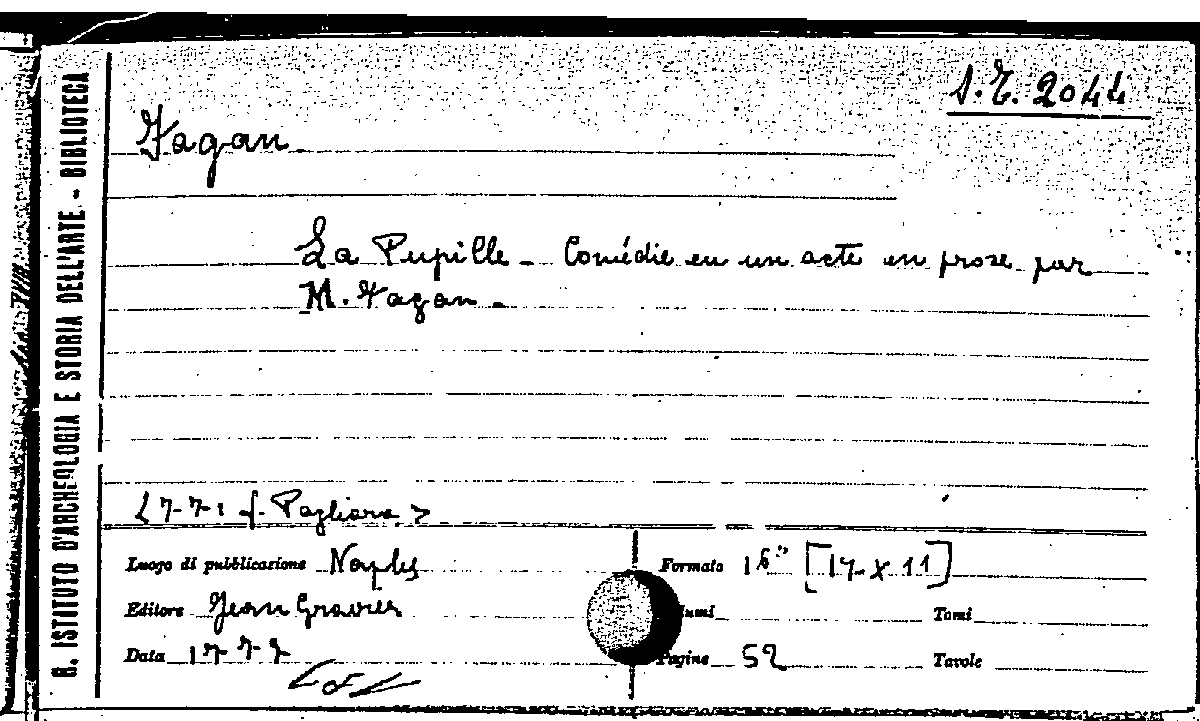 R. ISTITUTO D'ARCHEOLOGIA E STORIA DELL'ARTE - BIBLIOTECA
S.T. 2044
Fagan
La Pupille - Comédie en un acte en prose par
M. Fagan -
f. Pagliara >
Luogo di pubblicazione Naples
Formato 16° [17 x 11]
Editore Jean Gravier
lumi
Tomi
Data 1777
Pagine 52
Tavole